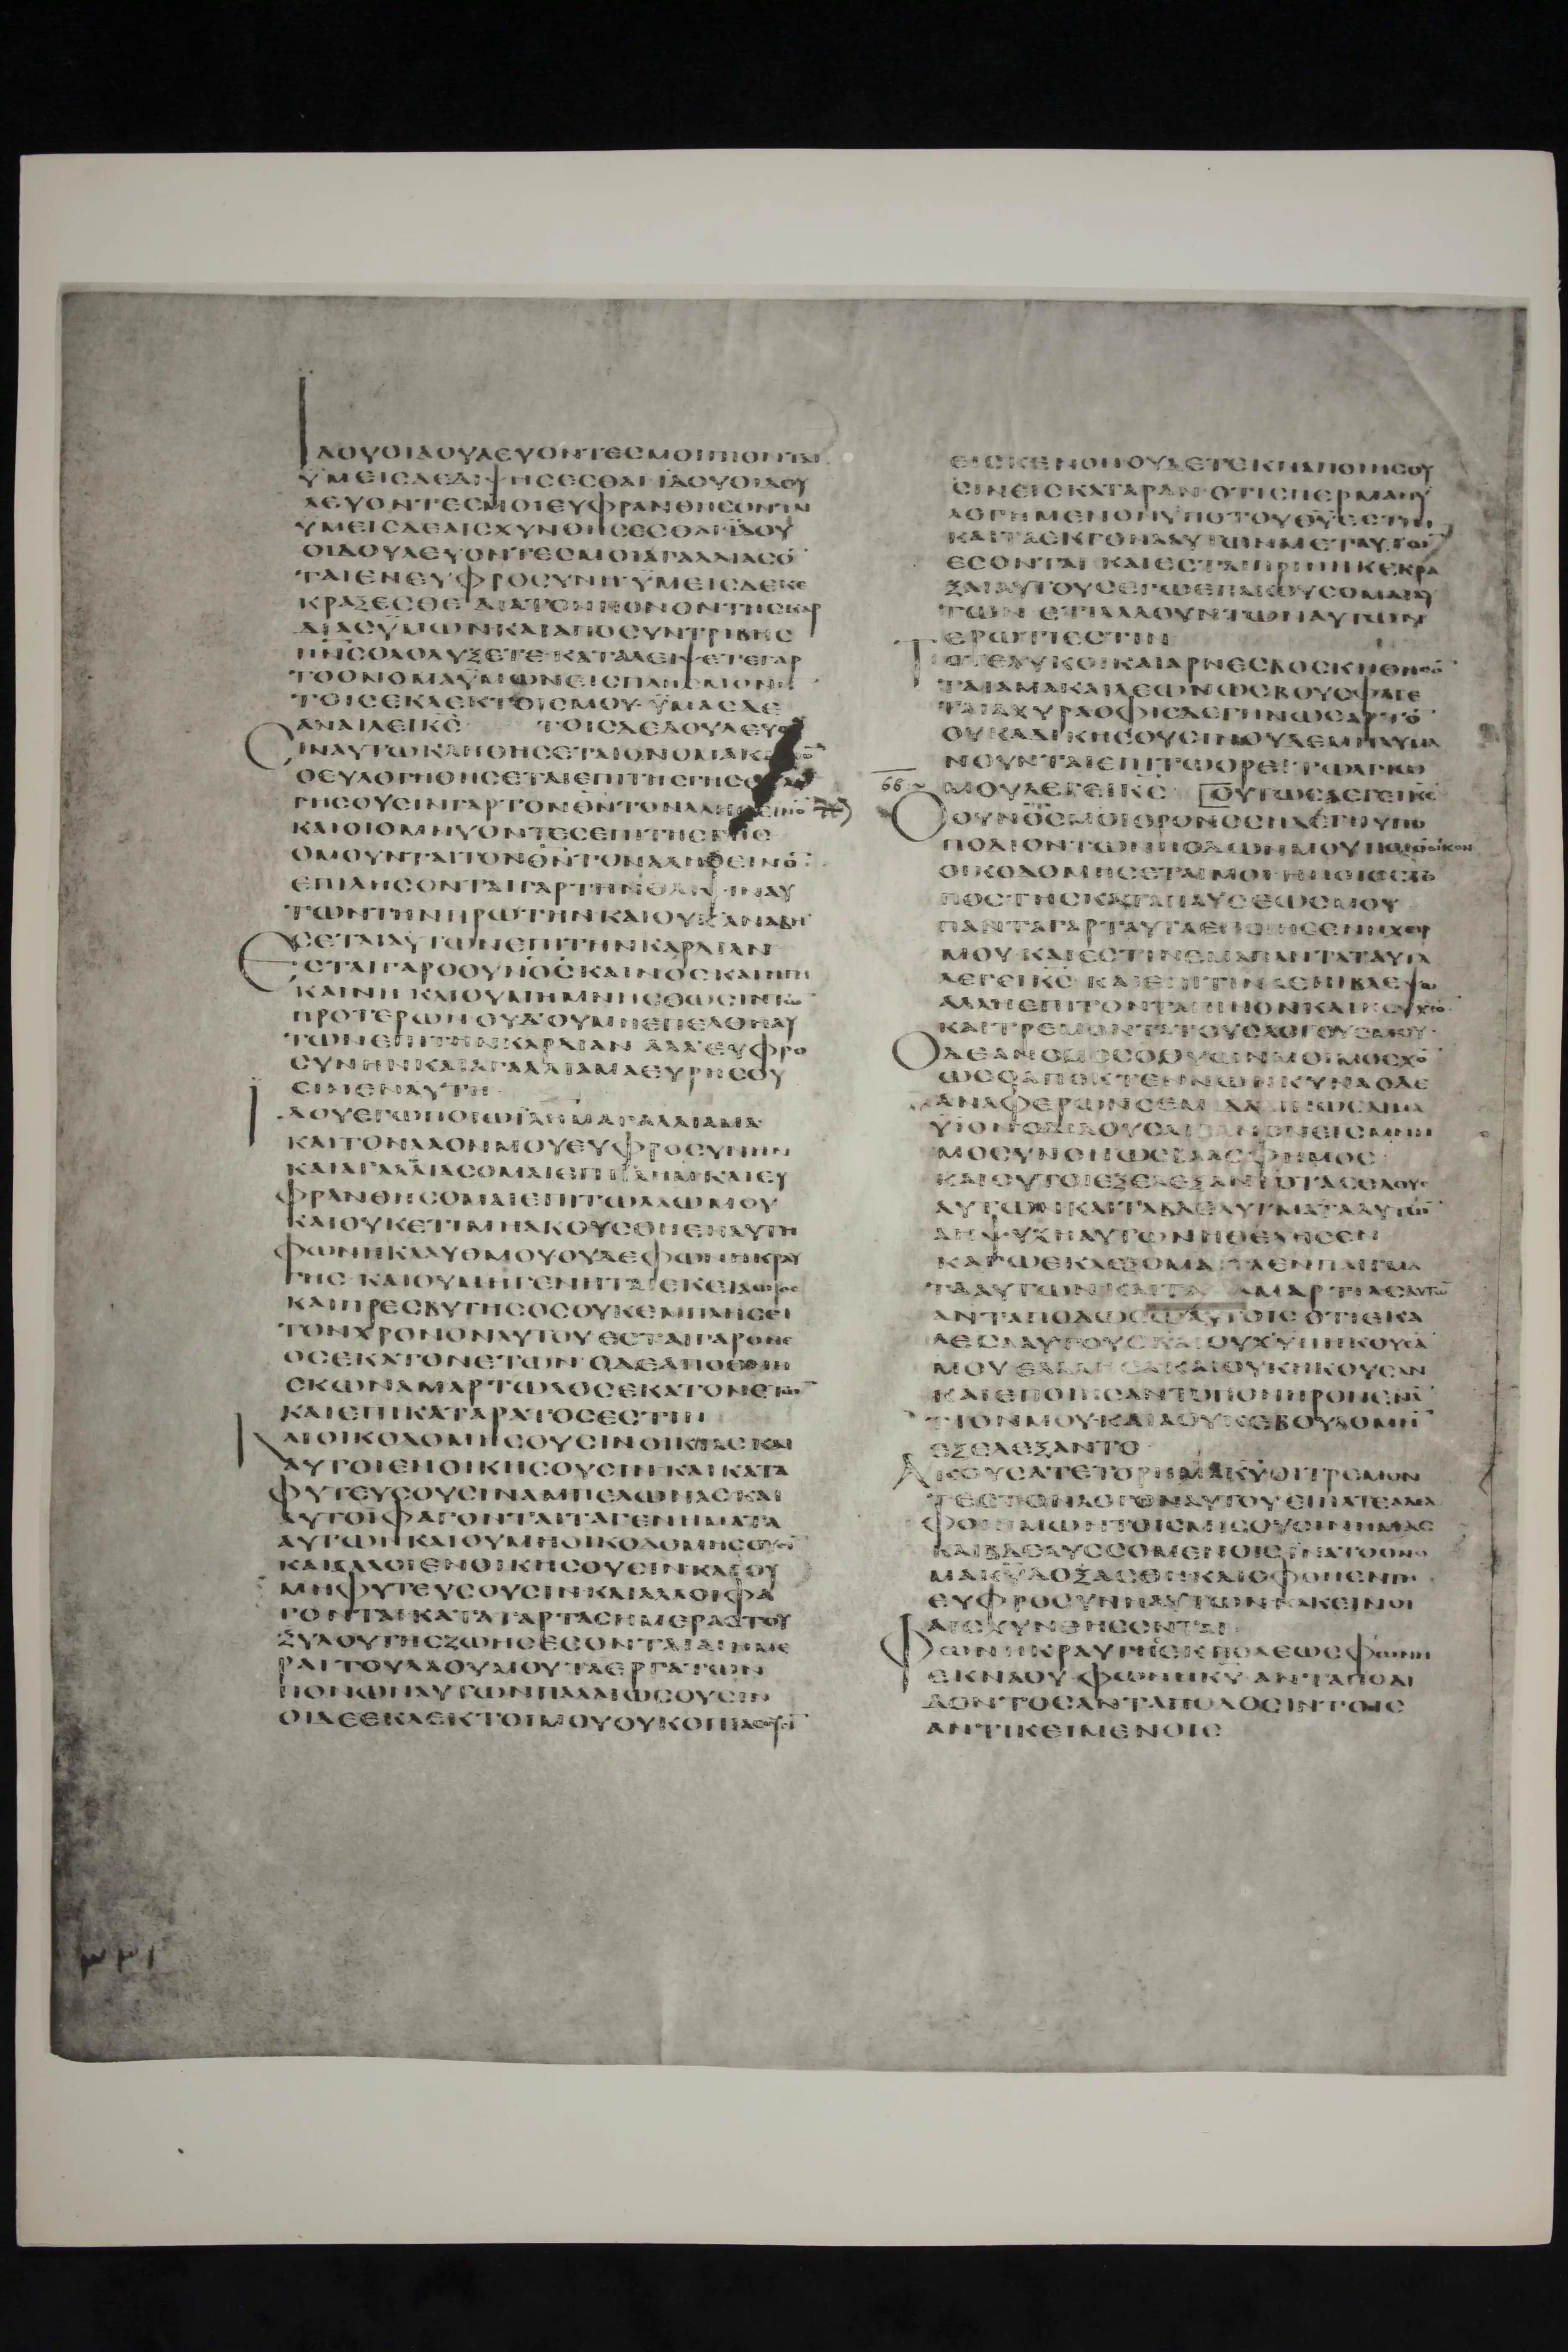 ΙΔΟΥΟΙΔΟΥΛΕΥΟΝΤΕΣΜΟΙΠΙΟΝΤΑΙ
ΫΜΕΙΣΔΕΔΙΨΗΣΕΣΘΑΙ·ΪΔΟΥΟΙΔΟΥ
ΛΕΥΟΝΤΕΣΜΟΙΕΥΦΡΑΝΘΗΣΟΝΤΑΙ
ΫΜΕΙΣΔΕΑΙΣΧΥΝΘΗΣΕΣΘΑΙ·ΪΔΟΥ
ΟΙΔΟΥΛΕΥΟΝΤΕΣΜΟΙΑΓΑΛΛΙΑΣΟ̅
ΤΑΙΕΝΕΥΦΡΟΣΥΝΗ·ΫΜΕΙΣΔΕΚΕ
ΚΡΑΞΕΣΘΕΔΙΑΤΟΝΠΟΝΟΝΤΗΣΚΑΡ
ΔΙΑΣΫΜΩΝΚΑΙΑΠΟΣΥΝΤΡΙΒΗΣ
ΠΝΣΟΛΟΛΥΞΕΤΕ·ΚΑΤΑΛΕΙΨΕΤΕΓΑΡ
ΤΟΟΝΟΜΑΫΜΩΝΕΙΣΠΛΗΣΜΟΝΗ̅
ΤΟΙΣΕΚΛΕΚΤΟΙΣΜΟΥ·ΫΜΑΣΔΕ
ΑΝΑΙΛΕΙΚ̅Σ̅ ΤΟΙΣΔΕΔΟΥΛΕΥΟΥ
ΣΙΝΑΥΤΩΚΛΗΘΗΣΕΤΑΙΟΝΟΜΑΚΑΙΝΟ̅
ΟΕΥΛΟΓΗΘΗΣΕΤΑΙΕΠΙΤΗΣΓΗΣΕΥΛΟ
ΓΗΣΟΥΣΙΝΓΑΡΤΟΝΘ̅Ν̅ΤΟΝΑΛΗΘΕΙΝΟ̅
ΚΑΙΟΙΟΜΝΥΟΝΤΕΣΕΠΙΤΗΣΓΗΣ
ΟΜΟΥΝΤΑΙΤΟΝΘ̅Ν̅ΤΟΝΑΛΗΘΕΙΝΟ̅·
ΕΠΙΛΗΣΟΝΤΑΙΓΑΡΤΗΝΘΛΙΨΙΝΑΥ
ΤΩΝΤΗΝΠΡΩΤΗΝΚΑΙΟΥΚΑΝΑΒΗ
ΣΕΤΑΙΑΥΤΩΝΕΠΙΤΗΝΚΑΡΔΙΑΝ
ΕΣΤΑΙΓΑΡΟΟΥΝΟΣΚΑΙΝΟΣΚΑΙΗΓΗ
ΚΑΙΝΗ·ΚΑΙΟΥΜΗΜΝΗΣΘΩΣΙΝΤΩ̅
ΠΡΟΤΕΡΩΝΟΥΔΟΥΜΗΕΠΕΛΘΗΑΥ
ΤΩΝΕΠΙΤΗΝΚΑΡΔΙΑΝ ΑΛΛΕΥΦΡΟ
ΣΥΝΗΝΚΑΙΑΓΑΛΛΙΑΜΑΕΥΡΗΣΟΥ
ΣΙΝΕΝΑΥΤΗ
ΙΔΟΥΕΓΩΠΟΙΩΙΛΗΜΑΓΑΛΛΙΑΜΑ
ΚΑΙΤΟΝΛΑΟΝΜΟΥΕΥΦΡΟΣΥΝΗΝ
ΚΑΙΑΓΑΛΛΙΑΣΟΜΑΙΕΠΙΙΛΗΜΚΑΙΕΥ
ΦΡΑΝΘΗΣΟΜΑΙΕΠΙΤΩΛΑΩΜΟΥ
ΚΑΙΟΥΚΕΤΙΜΗΑΚΟΥΣΘΗΕΝΑΥΤΗ
ΦΩΝΗΚΛΑΥΘΜΟΥΟΥΔΕΦΩΝΗΚΡΑΥ
ΓΗΣ·ΚΑΙΟΥΜΗΓΕΝΗΤΑΙΕΚΕΙΑΩΡΟΣ
ΚΑΙΠΡΕΣΒΥΤΗΣΟΣΟΥΚΕΜΠΛΗΣΕΙ
ΤΟΝΧΡΟΝΟΝΑΥΤΟΥΕΣΤΑΙΓΑΡΟΝΕ
ΟΣΕΚΑΤΟΝΕΤΩΝΟΔΕΑΠΟΘΝΗ
ΣΚΩΝΑΜΑΡΤΩΛΟΣΕΚΑΤΟΝΕΤΩ̅
ΚΑΙΕΠΙΚΑΤΑΡΑΤΟΣΕΣΤΙΝ
ΚΑΙΟΙΚΟΔΟΜΗΣΟΥΣΙΝΟΙΚΙΑΣΚΑΙ
ΑΥΤΟΙΕΝΟΙΚΗΣΟΥΣΙΝ·ΚΑΙΚΑΤΑ
ΦΥΤΕΥΣΟΥΣΙΝΑΜΠΕΛΩΝΑΣΚΑΙ
ΑΥΤΟΙΦΑΓΟΝΤΑΙΤΑΓΕΝΗΜΑΤΑ
ΑΥΤΩΝΚΑΙΟΥΜΗΟΙΚΟΔΟΜΗΣΟΥΣΙ̅
ΚΑΙΑΛΛΟΙΕΝΟΙΚΗΣΟΥΣΙΝΚΑΙΟΥ
ΜΗΦΥΤΕΥΣΟΥΣΙΝΚΑΙΑΛΛΟΙΦΑ
ΓΟΝΤΑΙΚΑΤΑΓΑΡΤΑΣΗΜΕΡΑΣΤΟΥ
ΞΥΛΟΥΤΗΣΖΩΗΣΕΣΟΝΤΑΙΑΙΗΜΕ
ΡΑΙΤΟΥΛΑΟΥΜΟΥΤΑΕΡΓΑΤΩΝ
ΠΟΝΩΝΑΥΤΩΝΠΑΛΑΙΩΣΟΥΣΙΝ
ΟΙΔΕΕΚΛΕΚΤΟΙΜΟΥΟΥΚΟΠΙΑΣΟΥΣΙ̅
ΕΙΣΚΕΝΟΝΟΥΔΕΤΕΚΝΑΠΟΙΗΣΟΥ
ΣΙΝΕΙΣΚΑΤΑΡΑΝ·ΟΤΙΣΠΕΡΜΑΗΥ
ΛΟΓΗΜΕΝΟΝΫΠΟΤΟΥΘ̅Υ̅ΕΣΤΙΝ
ΚΑΙΤΑΕΚΓΟΝΑΑΥΤΩΝΜΕΤΑΥΤΩ̅
ΕΣΟΝΤΑΙ ΚΑΙΕΣΤΑΙΠΡΙΝΗΚΕΚΡΑ
ΞΑΙΑΥΤΟΥΣΕΓΩΕΠΑΚΟΥΣΟΜΑΙΑΥ
ΤΩΝ ΕΤΙΛΑΛΟΥΝΤΩΝΑΥΤΩΝ
ΕΡΩΤΙΕΣΤΙΝ
ΤΟΤΕΛΥΚΟΙΚΑΙΑΡΝΕΣΒΟΣΚΗΘΗΣΟ̅
ΤΑΙΑΜΑΚΑΙΛΕΩΝΩΣΒΟΥΣΦΑΓΕ
ΤΑΙΑΧΥΡΑΟΦΙΣΔΕΓΗΝΩΣΑΡΤΟ̅
ΟΥΚΑΔΙΚΗΣΟΥΣΙΝΟΥΔΕΜΗΛΥΜΑ
ΝΟΥΝΤΑΙΕΠΙΤΩΟΡΕΙΤΩΑΓΙΩ
66 ΜΟΥΛΕΓΕΙΚ̅Σ̅ ΟΥΤΩΣΛΕΓΕΙΚ̅Σ̅
ΟΟΥΝΟΣΜΟΙΘΡΟΝΟΣΗΔΕΓΗΥΠΟ
ΠΟΔΙΟΝΤΩΝΠΟΔΩΝΜΟΥΠΟΙΟΝΟΙΚΟΝ
ΟΙΚΟΔΟΜΗΣΕΤΑΙΜΟΙΗΠΟΙΟΣΤΟ
ΠΟΣΤΗΣΚΑΤΑΠΑΥΣΕΩΣΜΟΥ
ΠΑΝΤΑΓΑΡΤΑΥΤΑΕΠΟΙΗΣΕΝΗΧΕΙΡ
ΜΟΥ·ΚΑΙΕΣΤΙΝΕΜΑΠΑΝΤΑΤΑΥΤΑ
ΛΕΓΕΙΚ̅Σ̅·ΚΑΙΕΠΙΤΙΝΑΕΠΙΒΛΕΨΩ
ΑΛΛΗΕΠΙΤΟΝΤΑΠΙΝΟΝΚΑΙΗΣΥΧΙΟ̅
ΚΑΙΤΡΕΜΟΝΤΑΤΟΥΣΛΟΓΟΥΣΜΟΥ·
ΟΔΕΑΝΟΜΟΣΟΘΥΩΝΜΟΙΜΟΣΧΟ̅
ΩΣΟΑΠΟΚΤΕΝΝΩΝΚΥΝΑΟΔΕ
ΑΝΑΦΕΡΩΝΣΕΜΙΔΑΛΙΝΩΣΑΙΜΑ
ΫΙΟΝΟΔΙΔΟΥΣΛΙΒΑΝΟΝΕΙΣΜΝΗ
ΜΟΣΥΝΟΝΩΣΒΛΑΣΦΗΜΟΣ
ΚΑΙΟΥΤΟΙΕΞΕΛΕΞΑΝΤΟΤΑΣΟΔΟΥΣ
ΑΥΤΩΝΚΑΙΤΑΒΔΕΛΥΓΜΑΤΑΑΥΤΩ̅
ΑΗΨΥΧΗΑΥΤΩΝΗΘΕΛΗΣΕΝ
ΚΑΓΩΕΚΛΕΞΟΜΑΙΤΑΕΝΠΑΙΓΜΑ
ΤΑΑΥΤΩΝΚΑΙΤΑ ΑΜΑΡΤΙΑΣΑΥΤΩ̅
ΑΝΤΑΠΟΔΩΣΩΑΥΤΟΙΣ ΟΤΙΕΚΑ
ΛΕΣΑΑΥΤΟΥΣΚΑΙΟΥΧΫΠΗΚΟΥΣΑ̅
ΜΟΥ ΕΛΑΛΗΣΑΚΑΙΟΥΚΗΚΟΥΣΑΝ
ΚΑΙΕΠΟΙΗΣΑΝΤΟΠΟΝΗΡΟΝΕΝΑ̅
ΤΙΟΝΜΟΥ·ΚΑΙΑΟΥΚΕΒΟΥΛΟΜΗ̅
ΕΞΕΛΕΞΑΝΤΟ·
ΑΚΟΥΣΑΤΕΤΟΡΗΜΑΚ̅Υ̅ΟΙΤΡΕΜΟΝ
ΤΕΣΤΟΝΛΟΓΟΝΑΥΤΟΥ·ΕΙΠΑΤΕΑΔΕΛ
ΦΟΙΗΜΩΝΤΟΙΣΜΙΣΟΥΣΙΝΗΜΑΣ
ΚΑΙΒΔΕΛΥΣΣΟΜΕΝΟΙΣΪΝΑΤΟΟΝΟ
ΜΑΚ̅Υ̅ΔΟΞΑΣΘΗΚΑΙΟΦΘΗΕΝΤΗ
ΕΥΦΡΟΣΥΝΗΑΥΤΩΝΚΑΚΕΙΝΟΙ
ΑΙΣΧΥΝΘΗΣΟΝΤΑΙ
ΦΩΝΗΚΡΑΥΓΗΣΕΚΠΟΛΕΩΣΦΩΝΗ
ΕΚΝΑΟΥ·ΦΩΝΗΚ̅Υ̅·ΑΝΤΑΠΟΔΙ
ΔΟΝΤΟΣΑΝΤΑΠΟΔΟΣΙΝΤΟΙΣ
ΑΝΤΙΚΕΙΜΕΝΟΙΣ
٣٣١